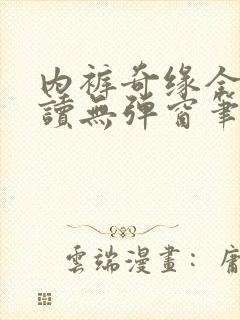 内裤奇缘全
讀無彈窗筆
雲端漫畫：